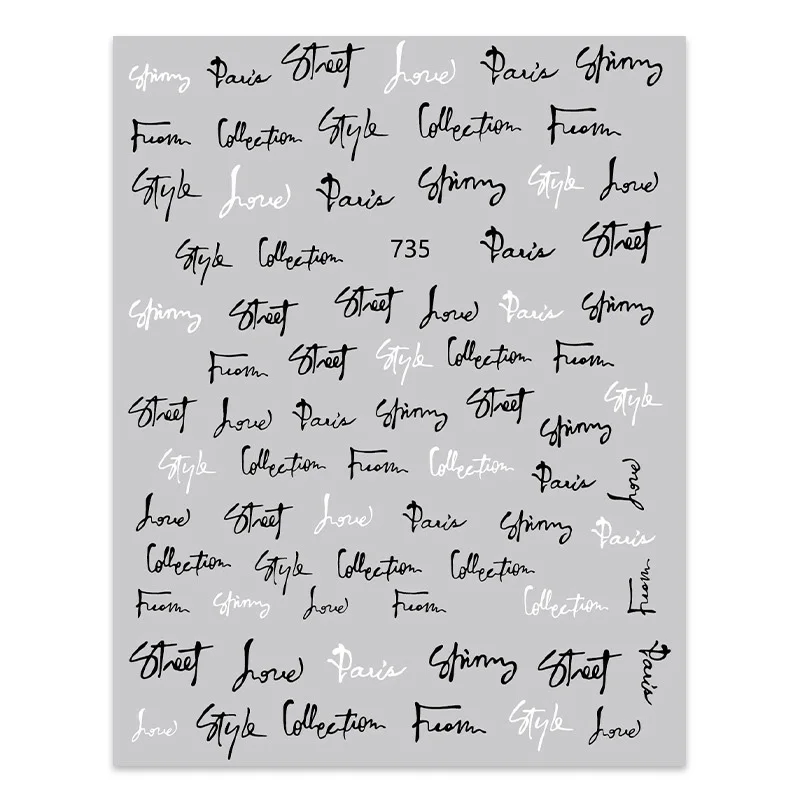 Spinny Paris Street Love Paris Spinny
From Collection Style Collection From
Style Love Paris Spinny Style Love
Style Collection 735 Paris Street
Spinny Street Street Love Paris Spinny
From Street Style Collection From
Street Love Paris Spinny Street Spinny Style
Style Collection From Collection Paris Love
Love Street Love Paris Spinny Paris
Collection Style Collection Collection
From Spinny Love From Collection From
Street Love Paris Spinny Street Paris
Love Style Collection From Style Love